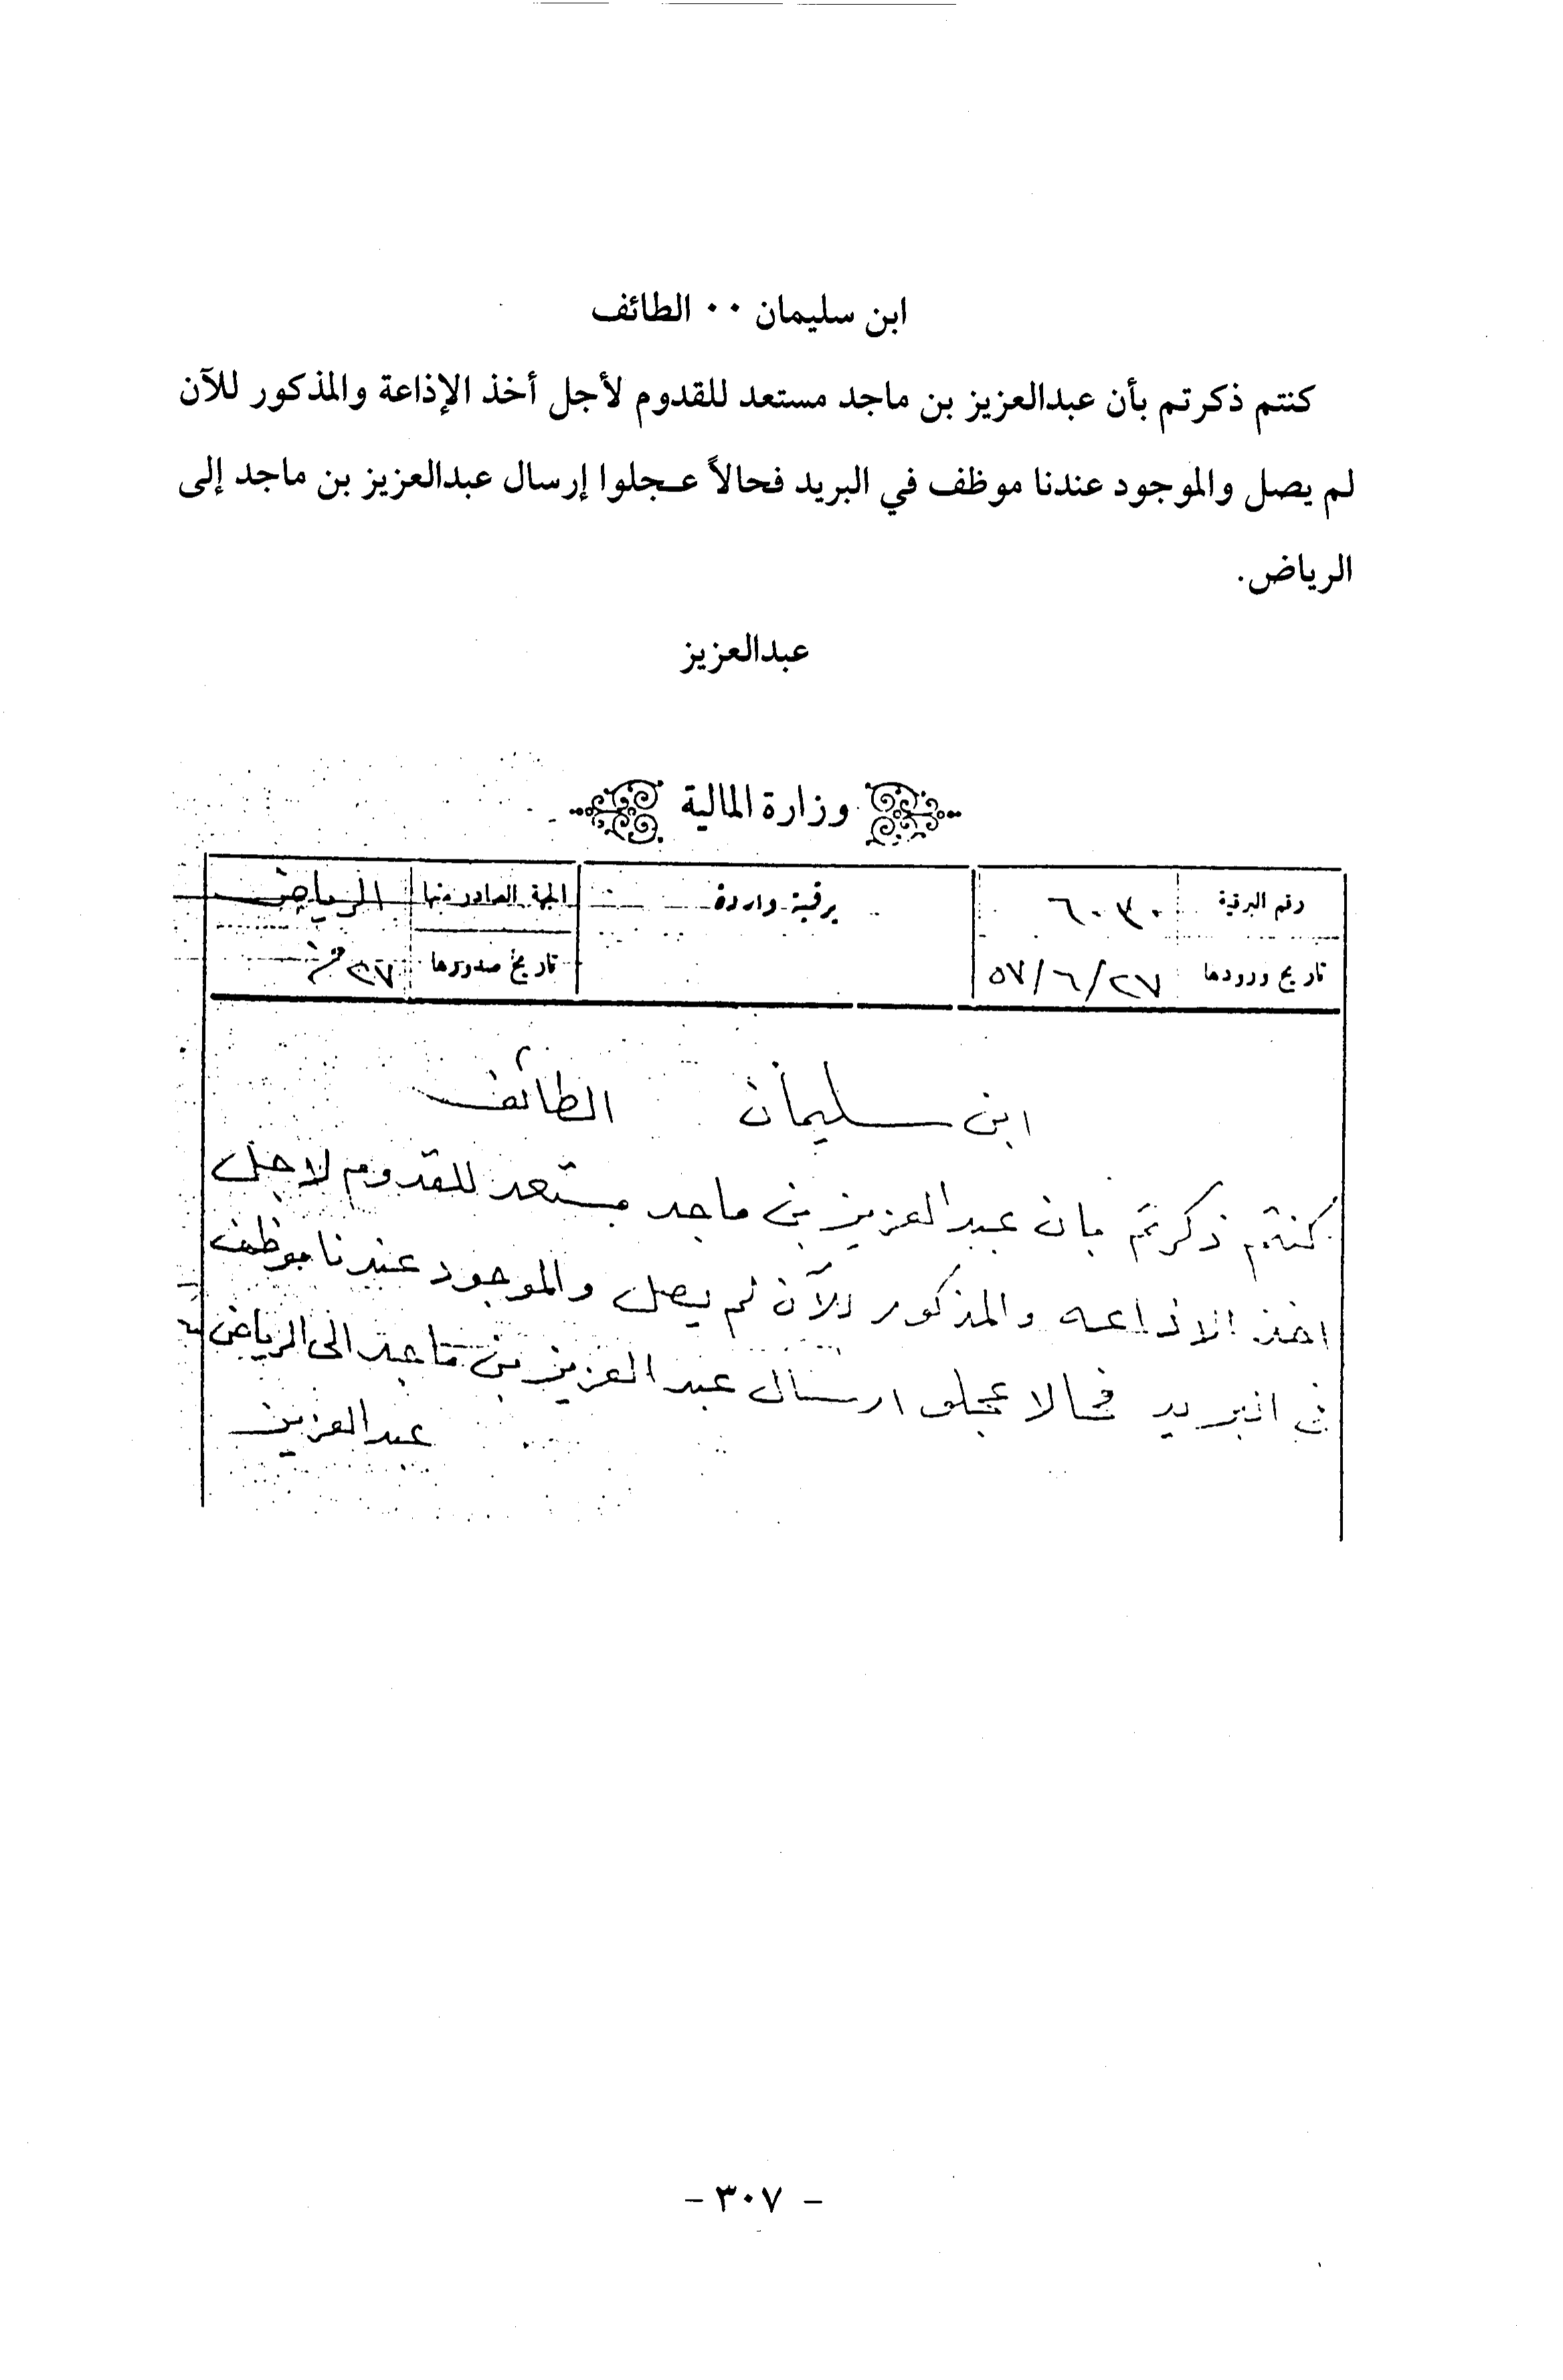 ابن سليمان ٠٠ الطائف
كنتم ذكرتم بأن عبدالعزيز بن ماجد مستعد للقدوم لأجل أخذ الإذاعة والمذكور للآن
لم يصل والموجود عندنا موظف في البريد فحالاً عجلوا إرسال عبدالعزيز بن ماجد إلى
الرياض.
عبدالعزيز
وزارة المالية
رقم البرقية ٦٠٣٠ برقية واردة الجهة الصادر منها الرياض
تاريخ ورودها ٥٧/٦/٢٧ تاريخ صدورها ٢٧ منه
ابن سليمان الطائف
كنتم ذكرتم بان عبد العزيز بن ماجد مستعد للقدوم لاجل
اخذ الاذاعه والمذكور للآن لم يصل والموجود عندنا موظف
في البريد فحالا عجلو ارسال عبد العزيز بن ماجد الى الرياض
عبد العزيز
- ٣٠٧ -